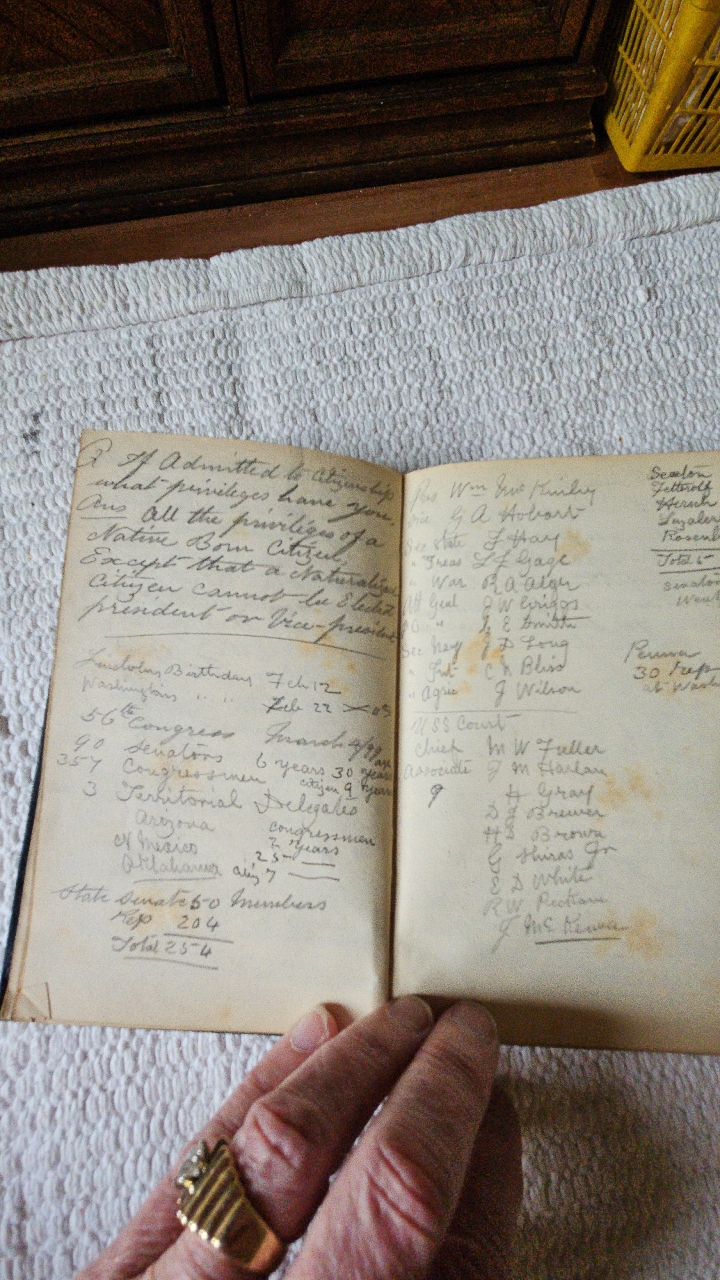 If Admitted to Citizenship
what privileges have you.
Ans All the privileges of a
Native Born Citizen
Except that a Naturalized
Citizen cannot be Elected
president or Vice-president
Lincolns Birthday Feb 12
Washingtons " " Feb 22
56th Congress March 4/99
90 Senators 6 years 30 years
357 Congressmen citizen 9 years
3 Territorial Delegates
Arizona Congressmen
N Mexico 2 years
Oklahama 25
7
State Senate 50 Members
Rep 204
Total 254
Pres Wm McKinley
Vice G A Hobart
Sec State J Hay
" Treas L J Gage
" War R A Alger
Att Genl J W Griggs
" J E Smith
Sec Navy J D Long
" Int C N Bliss
" Agric J Wilson
U S S Court
Chief M W Fuller
Associate J M Harlan
9 H Gray
D J Brewer
H B Brown
G Shiras Jr
E D White
R W Peckham
J McKenna
Sexton
Fetterolf
Total 5
Senator
Penna
30 Rep
at Wash